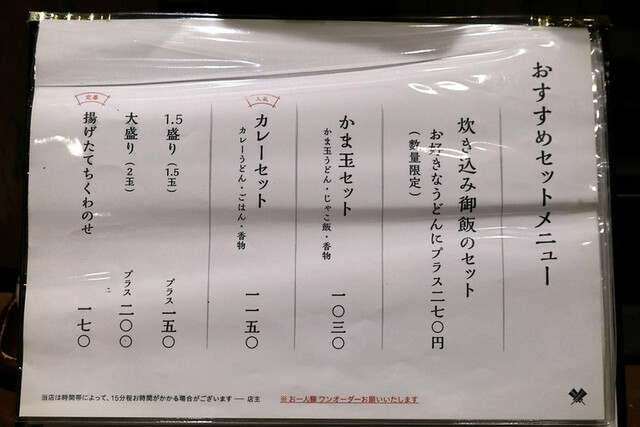 おすすめセットメニュー
炊き込み御飯のセット
お好きなうどんにプラス二七〇円
（数量限定）
かま玉セット 一〇三〇
かま玉うどん・じゃこ飯・香物
人気
カレーセット 一一五〇
カレーうどん・ごはん・香物
1.5盛り（1.5玉） プラス 一五〇
大盛り（2玉） プラス 二〇〇
定番
揚げたてちくわのせ 一七〇
当店は時間帯によって、15分程お時間がかかる場合がございます ── 店主
※ お一人様 ワンオーダーお願いいたします